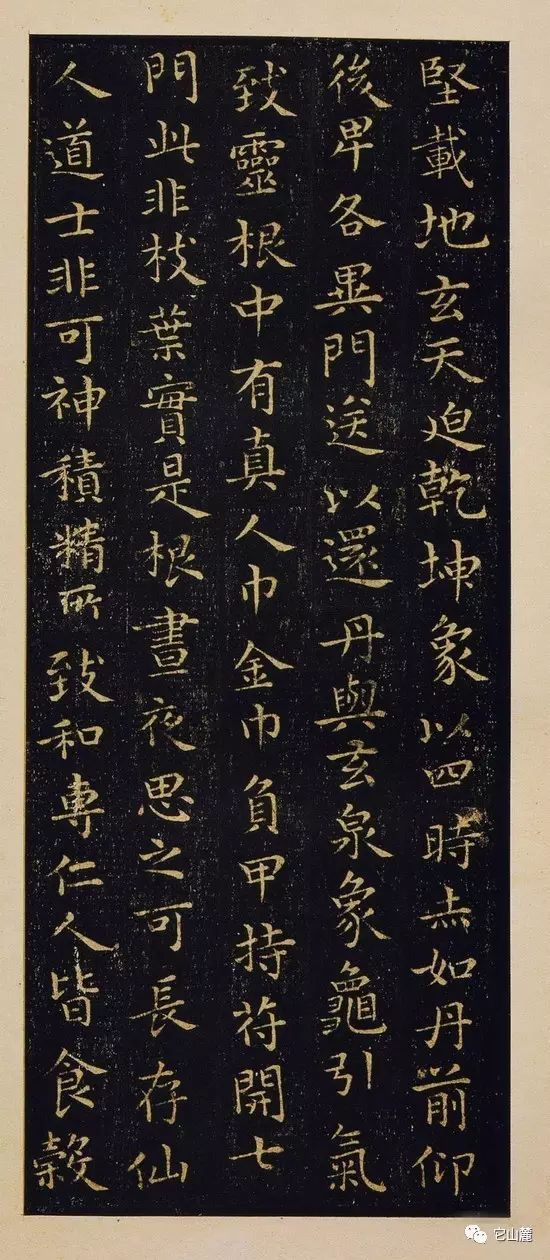 堅載地玄天迫乾坤象以四時赤如丹前仰
後卑各異門送以還丹與玄泉象龜引氣
致靈根中有真人巾金巾負甲持符開七
門此非枝葉實是根晝夜思之可長存仙
人道士非可神積精所致和專仁人皆食穀
它山麓